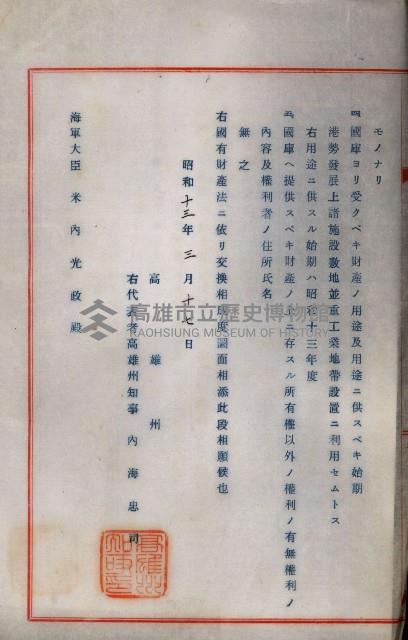 モノナリ
四、國庫ヨリ受クベキ財產ノ用途及用途ニ供スベキ始期
港勢發展上諸施設敷地並重工業地帶設置ニ利用セムトス
右用途ニ供スル始期ハ昭和十三年度
五、國庫ヘ提供スベキ財產ノ上ニ存スル所有權以外ノ權利ノ有無權利ノ
內容及權利者ノ住所氏名
無之
右國有財產法ニ依リ交換相成度圖面相添此段相願候也
昭和十三年三月十七日
高雄州
右代表者高雄州知事 內海忠司
海軍大臣 米內光政殿
高雄州知事印
高雄市立歷史博物館
KAOHSIUNG MUSEUM OF HISTORY